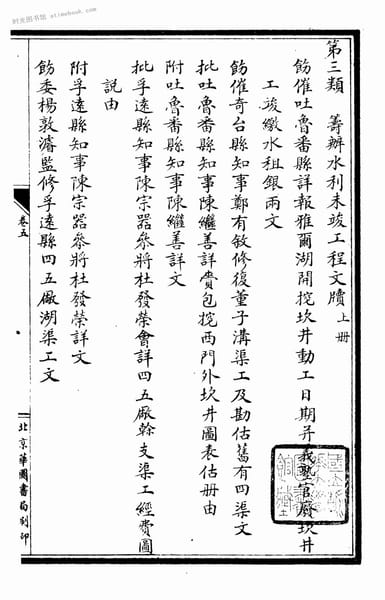 时光图书馆 stimebook.com
第三類 籌辦水利未竣工程文牘 上册
飭催吐魯番縣詳報雅爾湖開挖坎井動工日期并義塾官廢坎井
工竣繳水租銀兩文
飭催奇台縣知事鄭有敘修復董子溝渠工及勘估舊有四渠文
批吐魯番縣知事陳繼善詳賫包挖西門外坎井圖表估册由
附吐魯番縣知事陳繼善詳文
批孚遠縣知事陳宗器叅將杜發榮會詳四五廠幹支渠工經費圖
說由
附孚遠縣知事陳宗器叅將杜發榮詳文
飭委楊敦濬監修孚遠縣四五廠湖渠工文
卷五
北京華國書局刻印